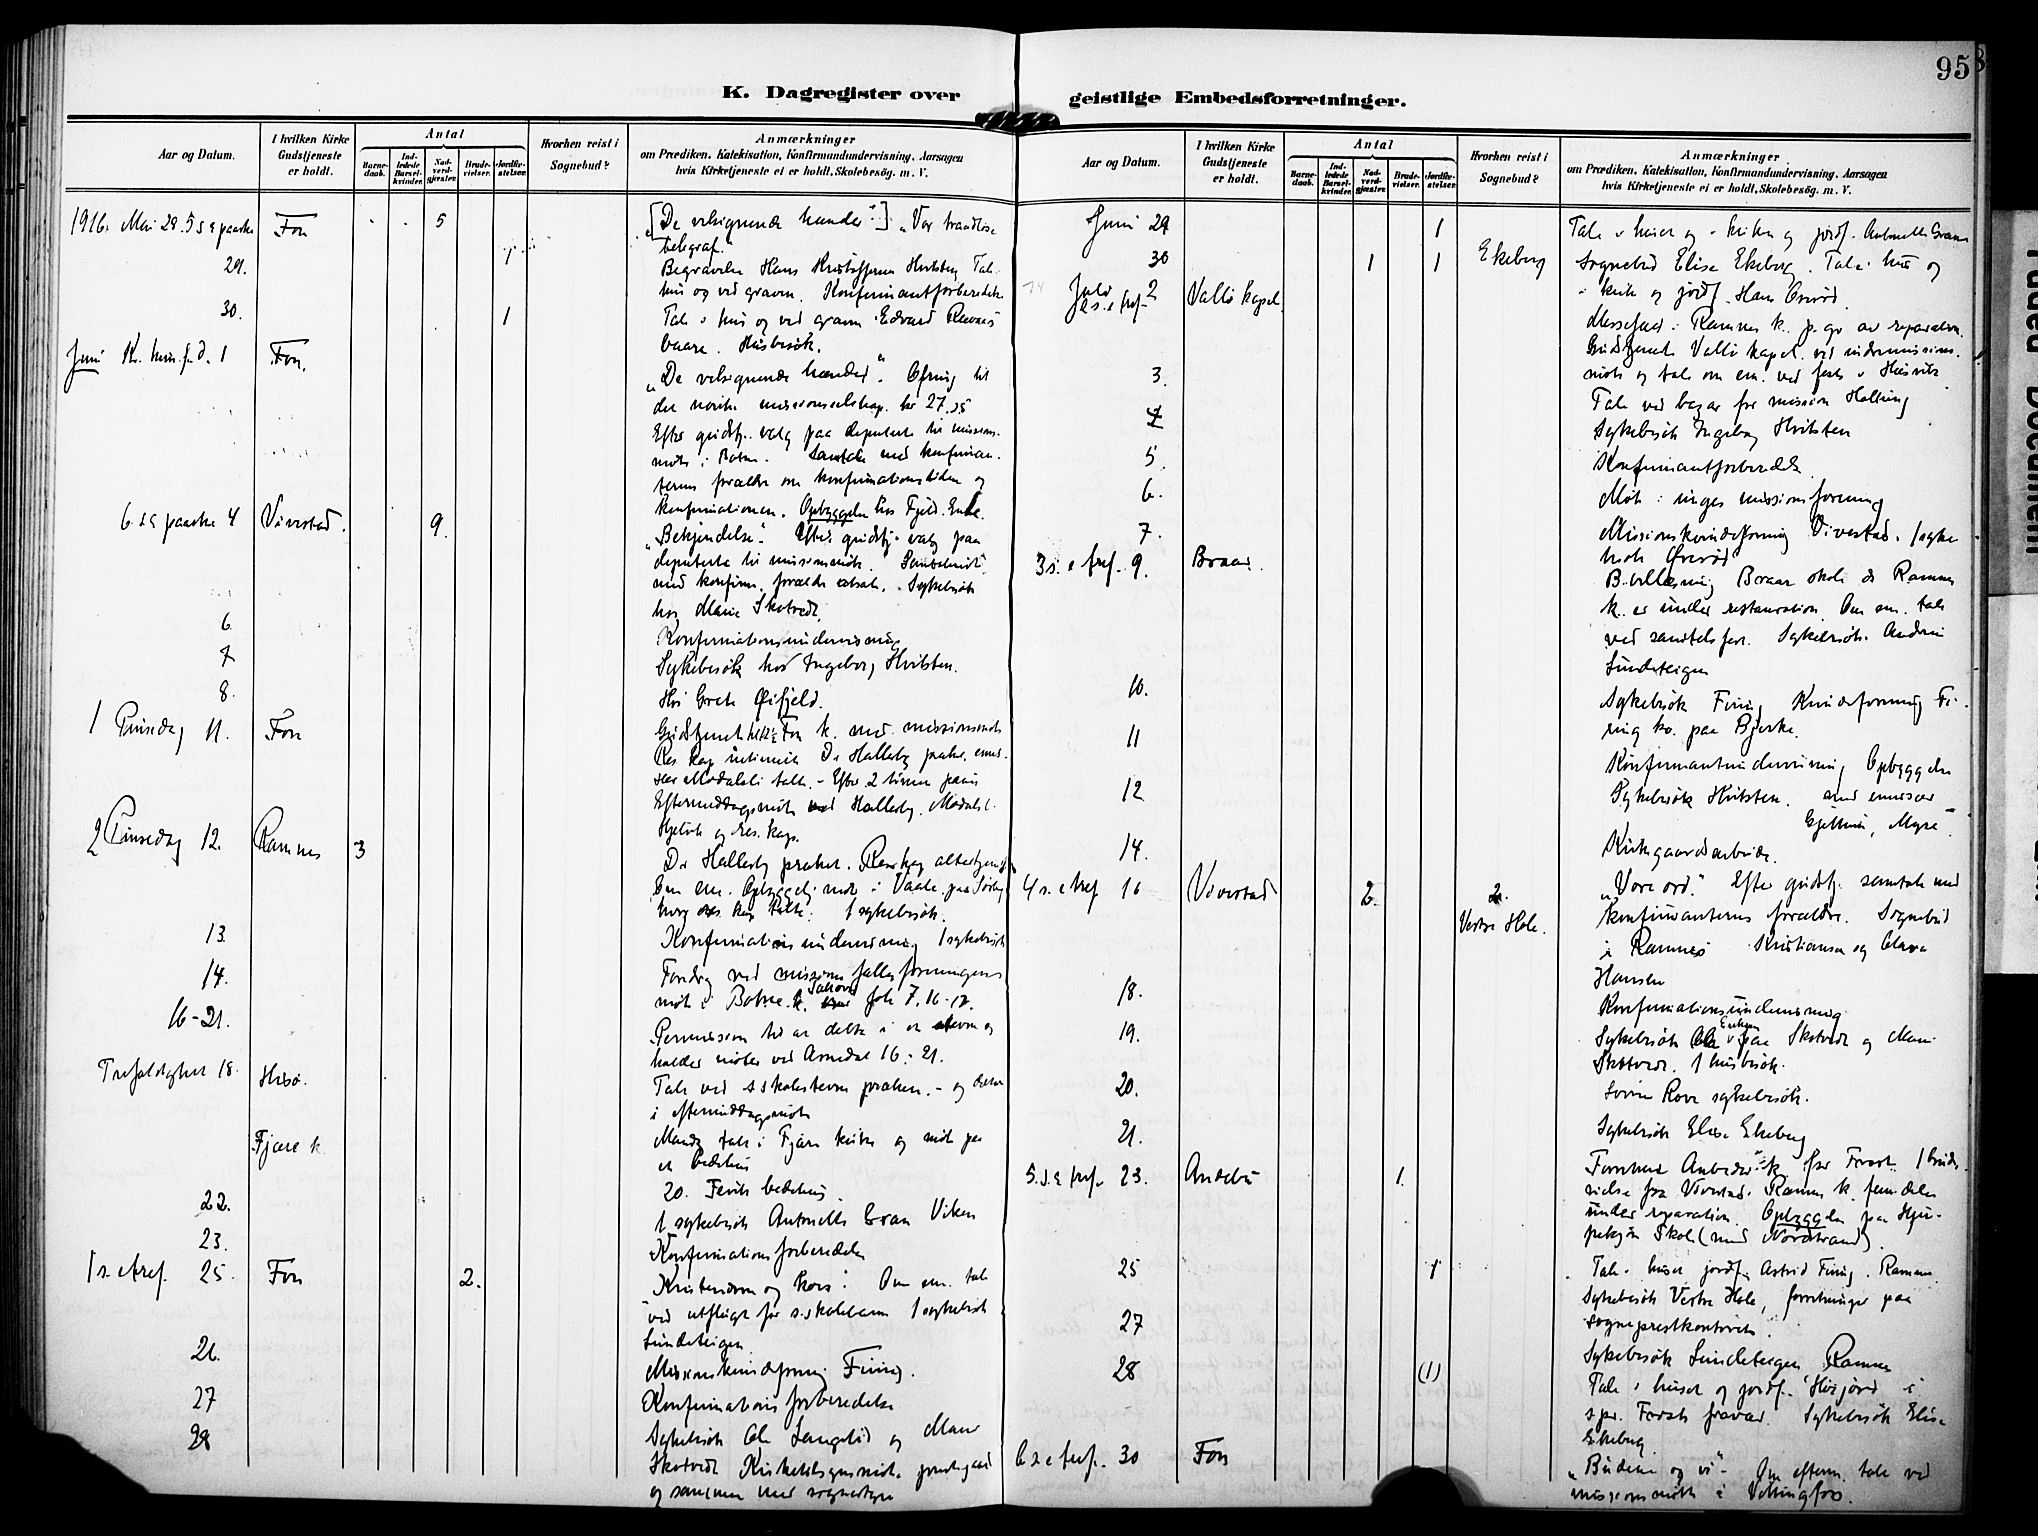 95
K. Dagregister over geistlige Embedsforretninger.
Aar og Datum.
I hvilken Kirke Gudstjeneste er holdt.
Antal
Barne-daab.
Ind-ledede Barsel-kvinder.
Nad-verd-gjæster.
Brude-vielser.
Jordfæ-stelser.
Hvorhen reist i Sognebud?
Anmærkninger
om Prædiken, Katekisation, Konfirmandundervisning, Aarsagen
hvis Kirketjeneste ei er holdt, Skolebesøg. m. V.
1916. Mai 28. 5 s e paaske Fon 5 [„De velsignende hænder"] „Vor traadløse
telegraf."
29. 1 Begravelse Hans Hvitsten Tale
hus og ved graven. Konfirmantforberedelse
30. 1 Tale i hus og ved graven Edvard Ravnes
baare. Husbesøk.
Juni Kr. him.f.d. 1 Fon. „De velsignende hænder". Ofring til
det norske missionsselskap. kr 27.35
Efter gudstj. valg paa deputerte til missions-
møte i Botne. Samtale med konfirman-
ternes forældre om konfirmationstiden og
konfirmationen. Opbyggelse hos Fjeld.
6. s e paaske 4 Vivestad. 9. „Bekjendelse". Efter gudstj. valg paa
deputerte til missionsmøte.
med konfirm. forældre Sykebesøk
hos Marie Skotvedt.
6. Konfirmationsundervisning
7 Sykebesøk hos Ingeborg Hvitsten.
8. Hos Grete Øifjeld.
1 Pinsedag 11. Fon Gudstjeneste i Fon k. med missionsmøte
Res kap Dr Hallesby præket.
Modalsli talte. - Efter 2 timer pause
Eftermiddagsmøte ved Hallesby. Modalsli.
og res. kap.
2 Pinsedag 12. Ramnes 3 Dr Hallesby præket. Res kap altertjeneste
Om em. Opbyggelsesmøte i Vaale
res kap talte. 1 sykebesøk.
13. Konfirmationsundervisning 1 sykebesøk
14. Foredrag ved missions fællesforeningens
møte i Botne k. over Joh 7. 16-17.
16-21. Permission til at delta i et stevne og
holder møter ved Arendal 16-21.
Trefoldighet 18. Hisø. Tale ved s skolestevne præken. - og deltar
i eftermiddagsmøte
Fjære k Mandag tale i Fjære kirke og møte paa
et bedehus
20. Fevik bedehus.
22. 1 sykebesøk Antonette Gran Viken
23. Konfirmations forberedelse
1 s. e tref. 25. Fon 2. „Kristendom og kors". Om em. tale
ved utflugt for s.skolebarn 1 sykebesøk
Lindeteigen
26. Missionskvindeforening Firing.
27 Konfirmations forberedelse
28 Sykebesøk Ole Langelid og Marie
Skotvedt Kirketilsynsmøte prestegaard
og sammen med sognestyre
Aar og Datum.
I hvilken Kirke Gudstjeneste er holdt.
Antal
Barne-daab.
Ind-ledede Barsel-kvinder.
Nad-verd-gjæster.
Brude-vielser.
Jordfæ-stelser.
Hvorhen reist i Sognebud?
Anmærkninger
om Prædiken, Katekisation, Konfirmandundervisning, Aarsagen
hvis Kirketjeneste ei er holdt, Skolebesøg. m. V.
Juni 29 1 Tale i huset og i kirken og jordf. Antonette Gran
30 1 1 Ekeberg Sognebud Elise Ekeberg. Tale i hus og
i kirke og jordf. Hans
Juli 2 2 s. e tref. Vallø kapel Messefald i Ramnes k. p. gr av reparation.
Gudstjeneste Vallø kapel. ved indremissions-
møte og tale om em. ved fest i Husvik
3. Tale ved bazar for mission
4 Sykebesøk Ingeborg Hvitsten
5. Konfirmantforberedelse
6. Møte i unges missionsforening
7. Missionskvindeforening Vivestad. 1 syke
besøk
3 s. e tref. 9. Braar. B.utlæsning Braar skole da Ramnes
k. er under restauration. Om em. tale
ved samtalsfest. Sykebesøk. Andrine
Lindeteigen
10. Sykebesøk Firing Kvindeforening Fi-
ring ko. paa Bjerke.
11 Konfirmantundervisning Opbyggelse
12 Sykebesøk Hvitsten. med emissær
Myre.
14. Kirkegaardsarbeide.
4 s. e tref 16 Vivestad 2. 2. „Vore ord." Efter gudstj. samtale med
Vestre Hole. konfirmanternes forældre. Sognebud
i Ramnes Kristiansen og Clara
Hansen
18. Konfirmationsundervisning
19. Sykebesøk paa Skotvedt og Marie
Skotvedt. 1 husbesøk.
20. Rove sykebesøk.
21. Sykebesøk Elise Ekeberg
5. s. e tref. 23. Andebu 1. Forrettet Andebu k. for 1 brude-
vielse fra Vivestad. Ramnes k. fremdeles
under reparation. Opbyggelse paa
skole (med Nordstrand).
25 1 Tale i huset jordf. Astrid Firing. Ramnes.
Sykebesøk Vestre Hole, forretninger paa
sogneprestkontoret.
27 Sykebesøk Lindeteigen Ramnes
28 (1) Tale i huset og jordf. i
s pr. fravær. Sykebesøk Elise
Ekeberg.
6 s e tref. 30 Fon „Budene og vi". Om efterm. tale ved
missionsmøte i Vittingfos.